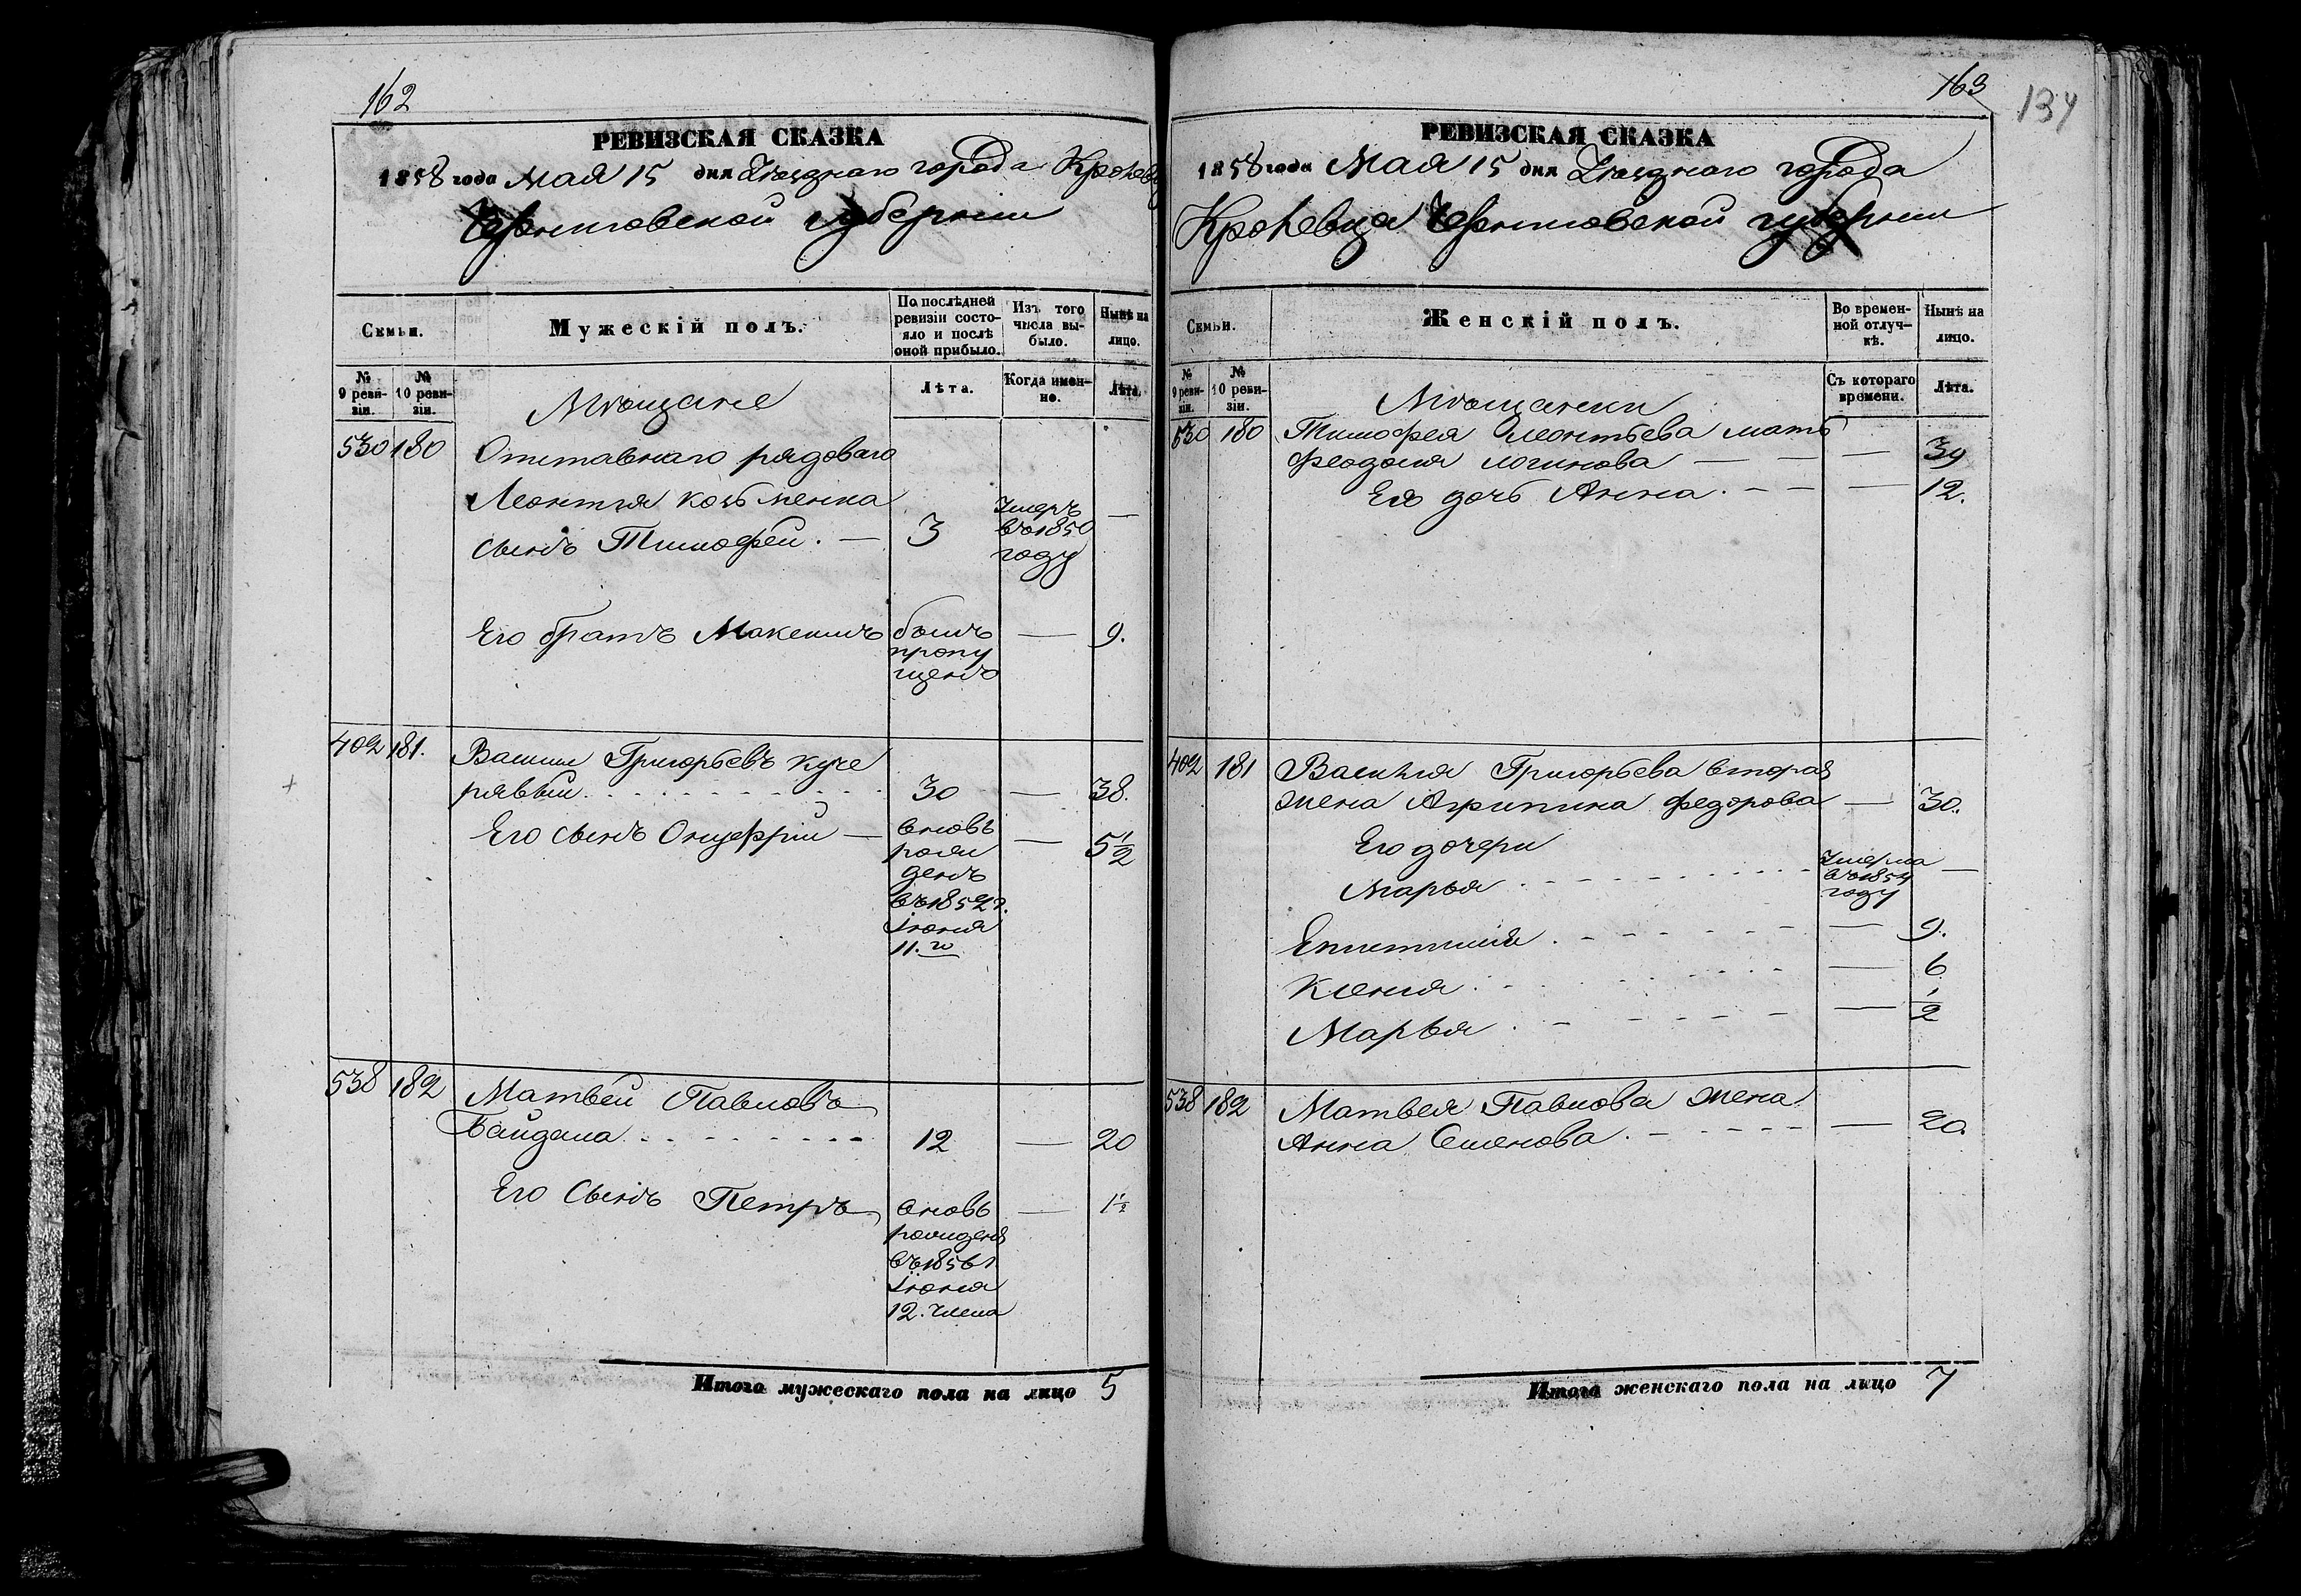 162
РЕВИЗСКАЯ СКАЗКА
1858 года Мая 15 дня Уѣзднаго города Кролевца
Черниговской губернии
Семьи.
Мужескій полъ.
По послѣдней ревизіи состояло и послѣ оной прибыло.
Изъ того числа выбыло.
Нынѣ на лицо.
№ 9 ревизіи.
№ 10 ревизіи.
Мѣщане
Лѣта.
Когда именно.
Лѣта.
530 180 Отставнаго рядоваго
Леонтия
сынъ Тимофей. — 3 Умеръ въ 1850 году —
Его братъ Максимъ былъ пропущенъ — 9.
402 181. Василий Григорьевъ Куче
рявый 30 — 38.
Его сынъ Онуфрій — вновь рожденъ въ 1852 г. Іюня 11.го — 5 1/2
538 182 Матвей Павловъ
Байдала 12 — 20
Его сынъ Петръ вновь рожденъ въ 1856 г. Іюня 12. числа — 1 1/2
Итого мужескаго пола на лицо 5
163
134
РЕВИЗСКАЯ СКАЗКА
1858 года Мая 15 дня Уѣзднаго города
Кролевца Черниговской губернии
Семьи.
Женскій полъ.
Во временной отлучкѣ.
Нынѣ на лицо.
№ 9 ревизіи.
№ 10 ревизіи.
Мѣщанки
Съ котораго времени.
Лѣта.
530 180 Тимофея Леонтьева мать
Феодосия Логинова — — — 39
Ея дочь Анна. — — — 12.
402 181 Василия Григорьева вторая
жена Агрипина Федорова — 30.
Его дочери
Марья Умерла въ 1854 году —
Епистимия — 9.
Ксения — 6
Марья — 1/2
538 182 Матвея Павлова жена
Анна Семенова — 20.
Итого женскаго пола на лицо 7